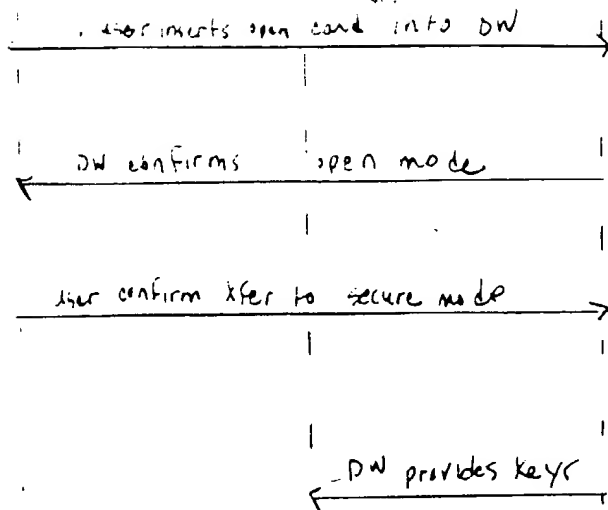 User inserts open card into DW
DW confirms open mode
User confirm Xfer to secure mode
DW provides keys